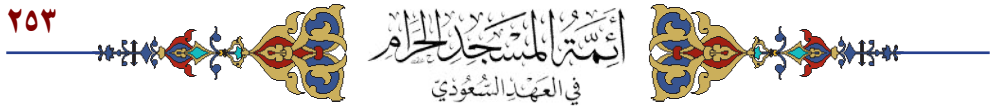 ٢٥٣
أَئِمَّةُ المَسْجِدِ الحَرَامِ
فِي العَهْدِ السُّعُودِيِّ